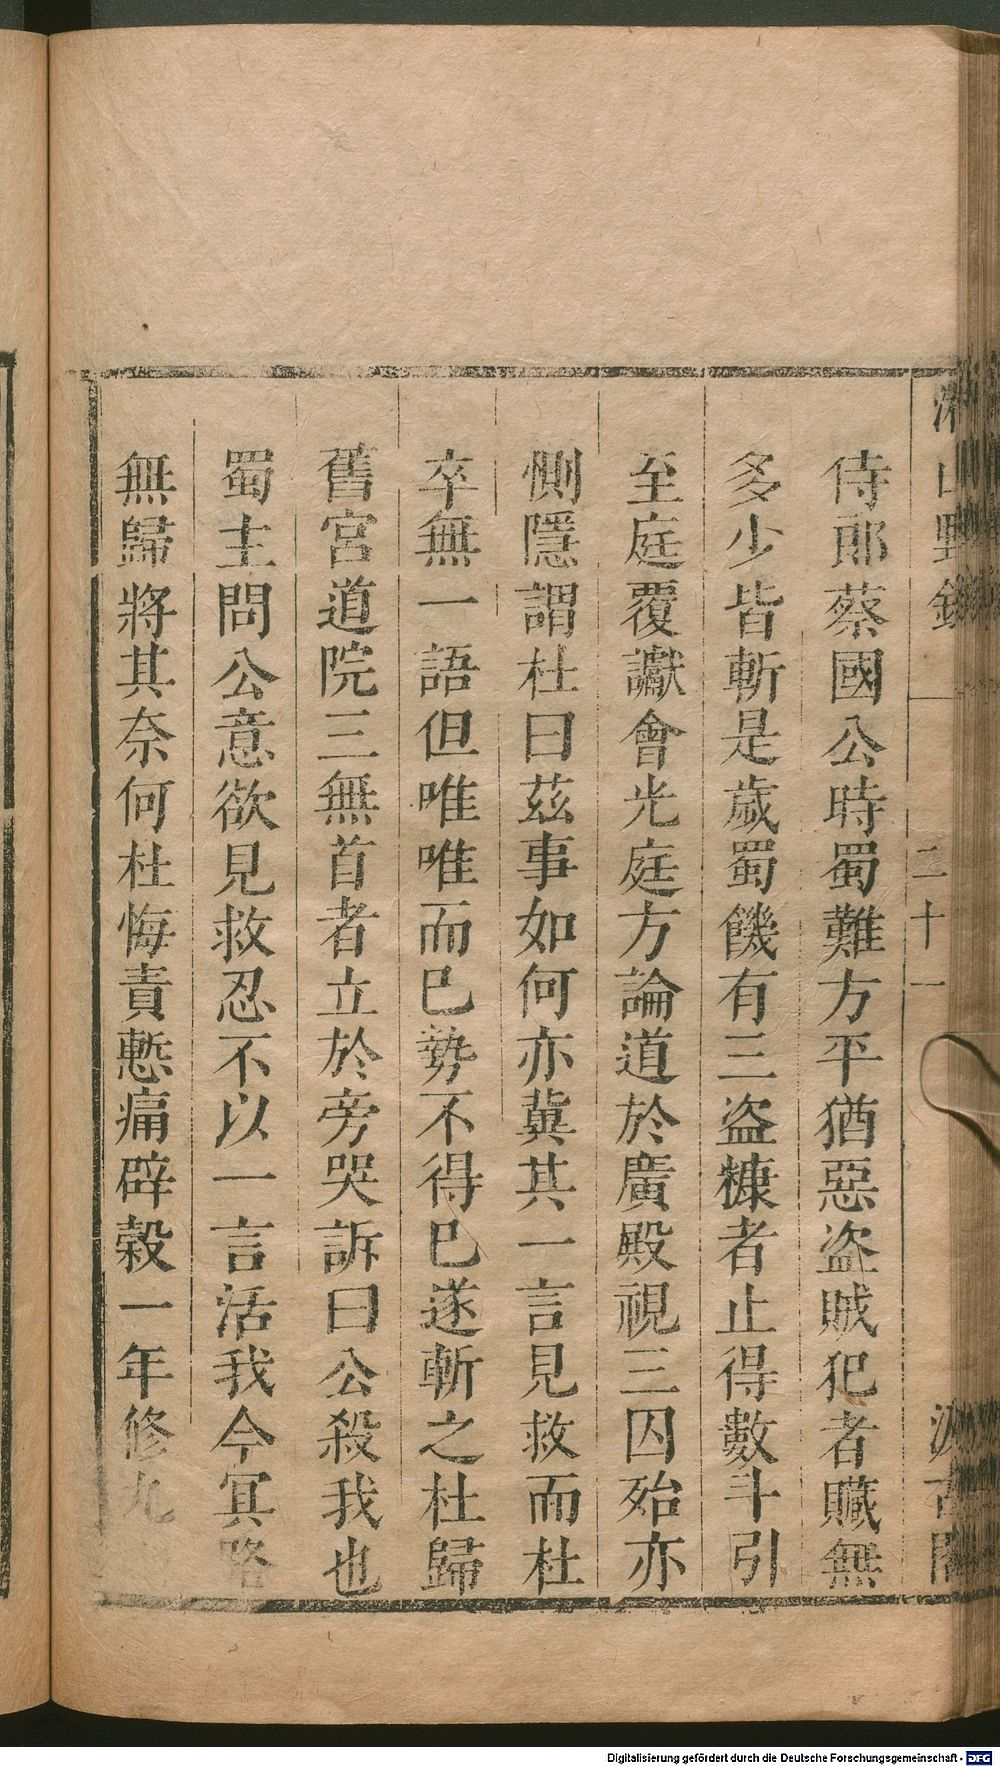 侍郎蔡國公時蜀難方平猶惡盗賊犯者贓無
多少皆斬是歲蜀饑有三盗糠者止得數斗引
至庭覆讞會光庭方論道於廣殿視三囚殆亦
惻隱謂杜曰茲事如何亦冀其一言見救而杜
卒無一語但唯唯而巳勢不得巳遂斬之杜歸
舊宮道院三無首者立於旁哭訴曰公殺我也
蜀主問公意欲見救忍不以一言活我今冥路
無歸將其奈何杜悔責慙痛辟穀一年修九
山野錄
二十一
汲古閣
Digitalisierung gefördert durch die Deutsche Forschungsgemeinschaft - DFG